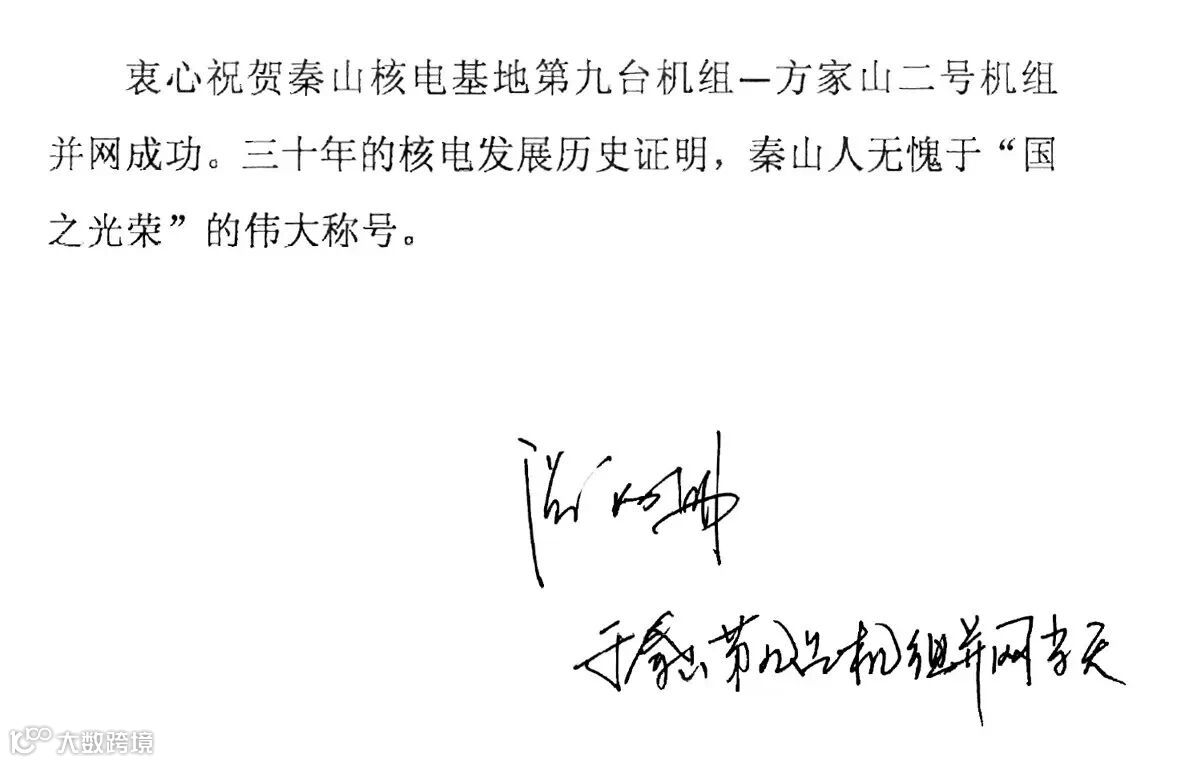 衷心祝贺秦山核电基地第九台机组—方家山二号机组
并网成功。三十年的核电发展历史证明，秦山人无愧于“国
之光荣”的伟大称号。
于秦山第九台机组并网当天
大数跨境